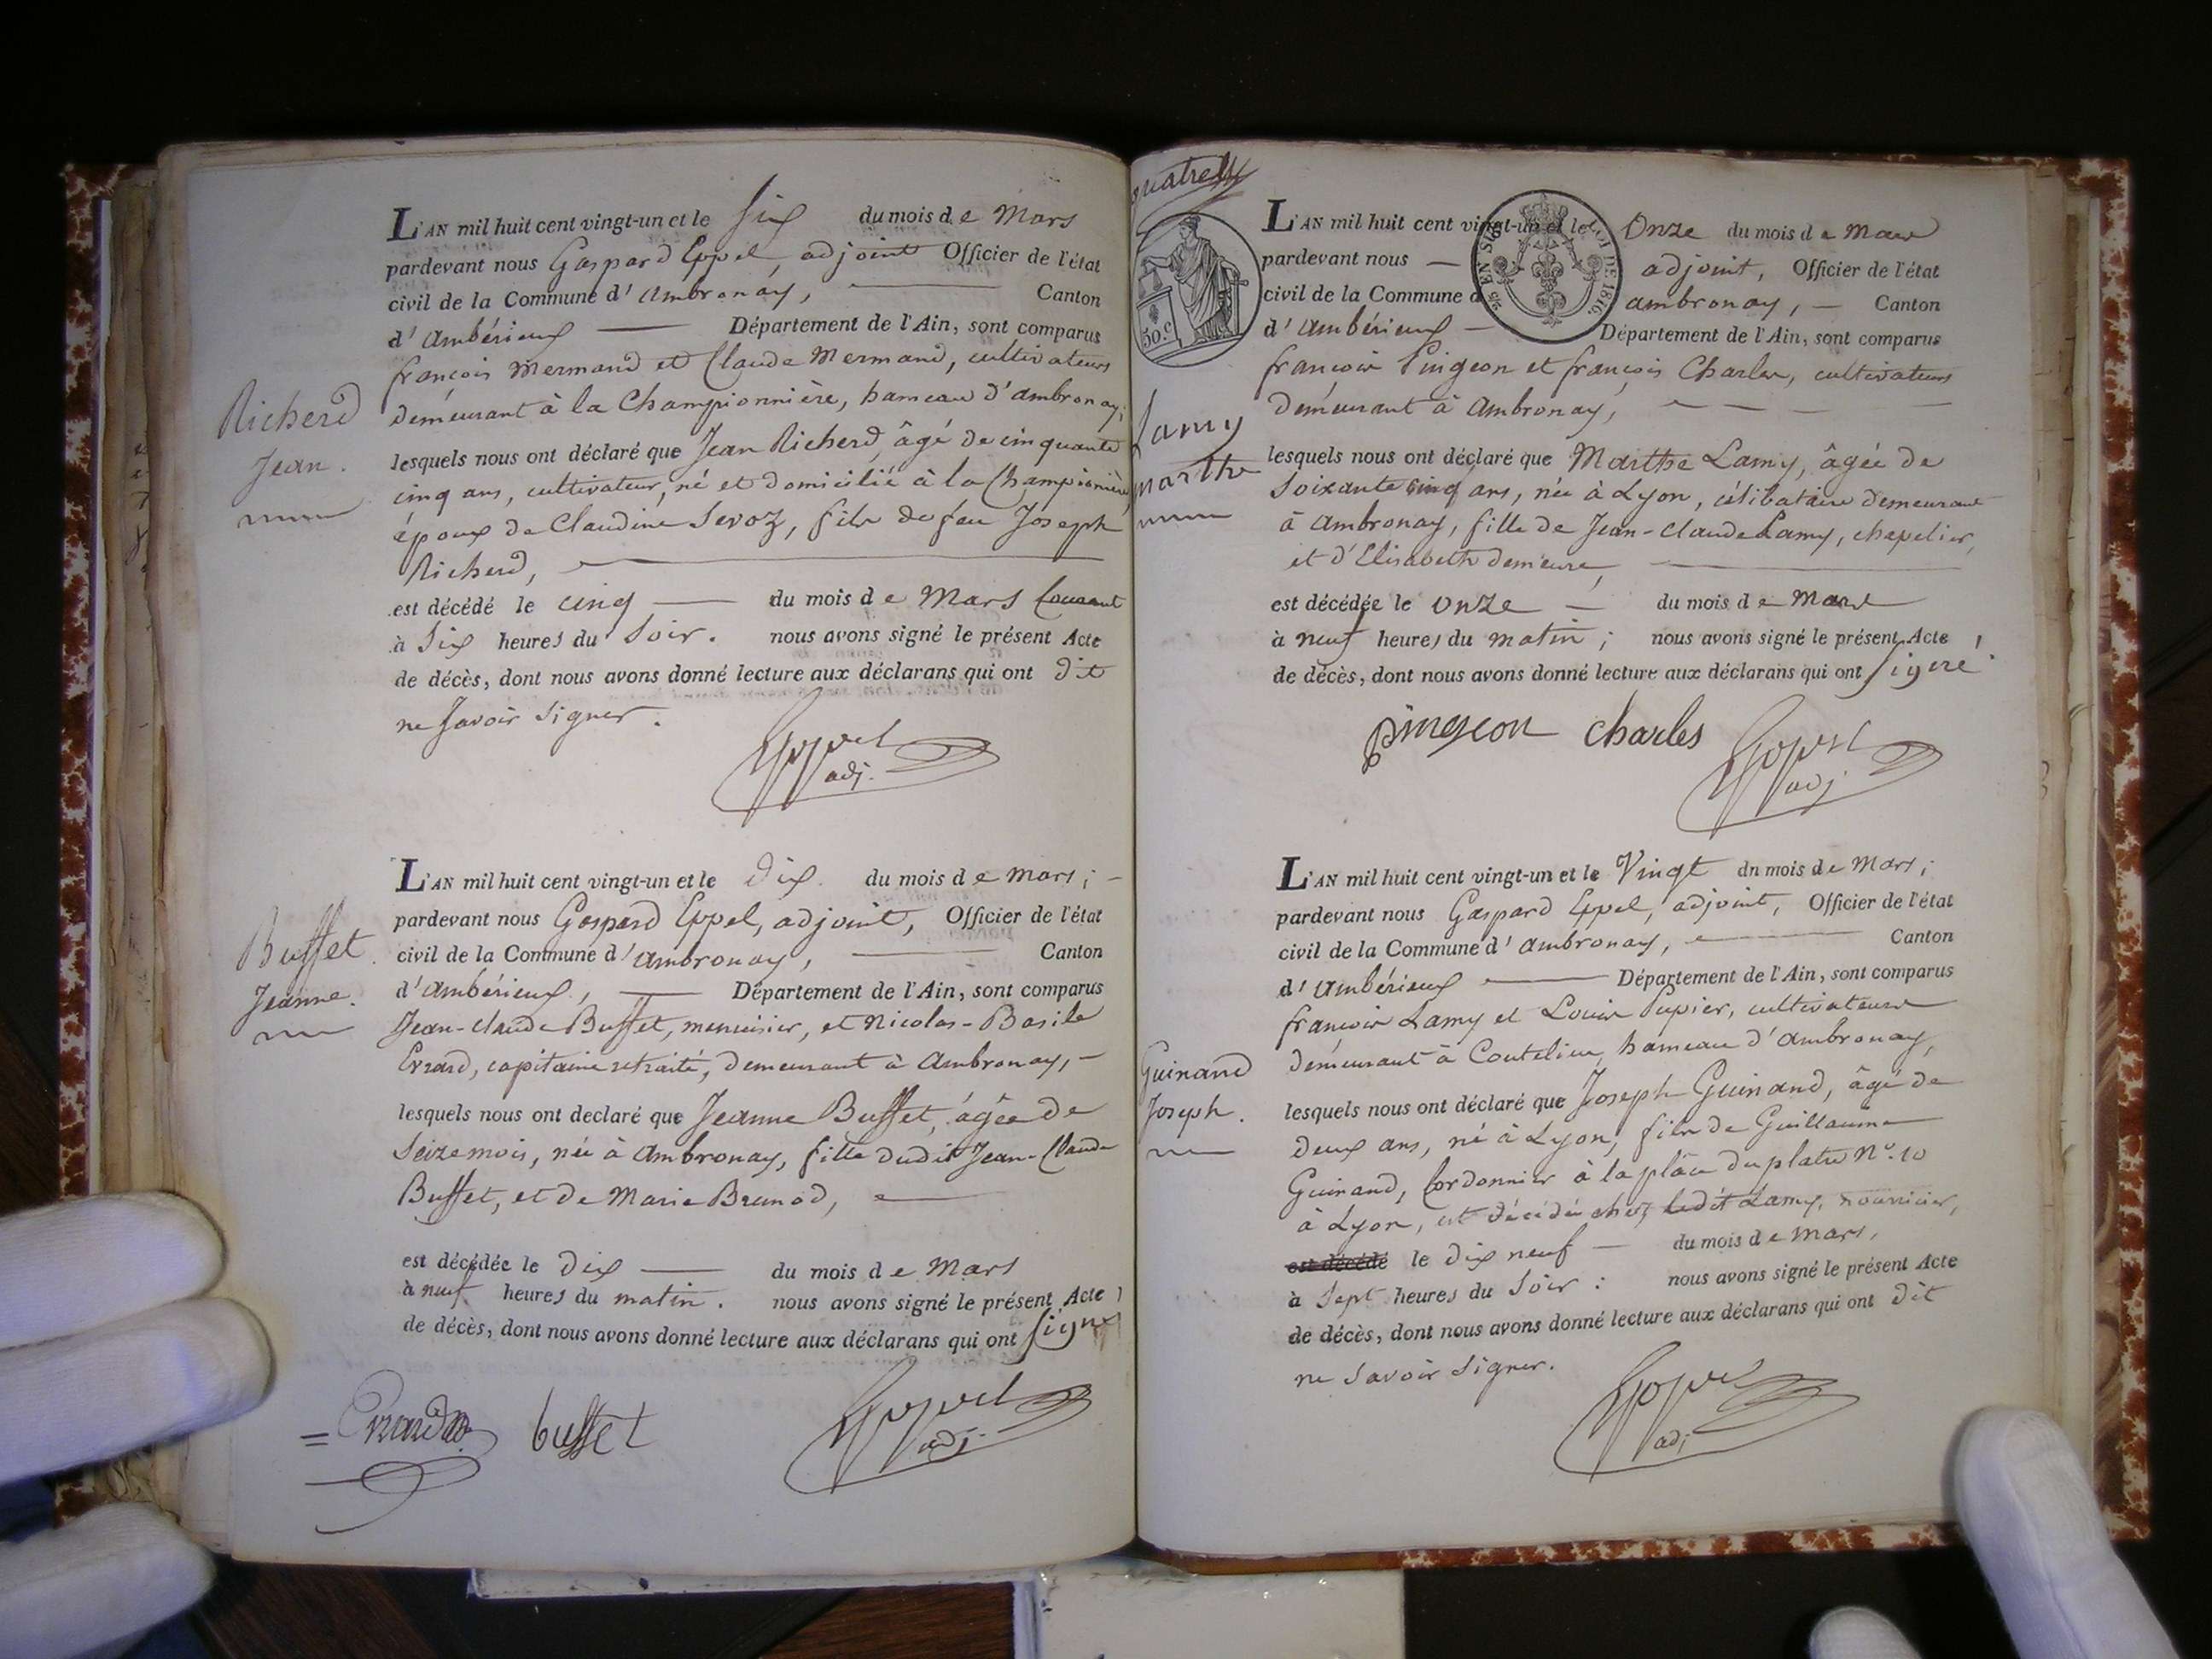 Richerd
Jean.
L'AN mil huit cent vingt-un et le Six du mois de Mars
pardevant nous Gaspard Eppel, adjoint Officier de l'état
civil de la Commune d'Ambronay, Canton
d'Ambérieux Département de l'Ain, sont comparus
françois Mermand et Claude Mermand, cultivateurs
demeurant à la Championnière, hameau d'ambronay;
lesquels nous ont déclaré que Jean Richerd, âgé de cinquante
cinq ans, cultivateur, né et domicilié à la Championière,
époux de Claudine Sevoz, fils de feu Joseph
Richerd,
est décédé le cinq du mois de Mars Courant
à Six heures du Soir. nous avons signé le présent Acte
de décès, dont nous avons donné lecture aux déclarans qui ont dit
ne Savoir Signer.
Eppel
adj.
Buffet.
Jeanne.
L'AN mil huit cent vingt-un et le Dix. du mois de mars;
pardevant nous Gaspard Eppel, adjoint, Officier de l'état
civil de la Commune d'ambronay, Canton
d'ambérieux, Département de l'Ain, sont comparus
Jean-claude Buffet, menuisier, et Nicolas-Basile
Evrard, capitaine retraité, demeurant à Ambronay,
lesquels nous ont declaré que Jeanne Buffet, âgée de
Seize mois, née à Ambronay, fille dudit Jean-Claude
Buffet, et de Marie Brunod,
est décédée le Dix du mois de Mars
à neuf heures du matin. nous avons signé le présent Acte
de décès, dont nous avons donné lecture aux déclarans qui ont signé
Evrard buffet Eppel
adj.
quatre
50.c
EN SUS
LOI DE 1816
Lamy
marthe
L'AN mil huit cent vingt-un et le Onze du mois de Mars
pardevant nous adjoint, Officier de l'état
civil de la Commune d ambronay, Canton
d'ambérieux Département de l'Ain, sont comparus
françois Pingeon et françois Charles, cultivateurs
demeurant à Ambronay,
lesquels nous ont déclaré que Marthe Lamy, âgée de
Soixante cinq ans, née à Lyon, célibataire demeurant
à Ambronay, fille de Jean-claude Lamy, chapelier,
et d'Elisabeth demeure,
est décédée le onze du mois de Mars
à neuf heures du matin; nous avons signé le présent Acte
de décès, dont nous avons donné lecture aux déclarans qui ont signé.
pingeon charles Eppel
adj
Guinand
Joseph.
L'AN mil huit cent vingt-un et le Vingt dn mois de Mars;
pardevant nous Gaspard Eppel, adjoint, Officier de l'état
civil de la Commune d'ambronay, Canton
d'ambérieux Département de l'Ain, sont comparus
françois Lamy et Louis Pupier, cultivateurs
demeurant à Coutelieu, hameau d'ambronay,
lesquels nous ont déclaré que Joseph Guinand, âgé de
deux ans, né à Lyon, fils de Guillaume
Guinand, Cordonnier à la place du platre N°. 10
à Lyon, est décédé chez ledit Lamy, nourricier,
est décédé le dix neuf du mois de Mars,
à Sept heures du Soir: nous avons signé le présent Acte
de décès, dont nous avons donné lecture aux déclarans qui ont dit
ne Savoir Signer.
Eppel
adj